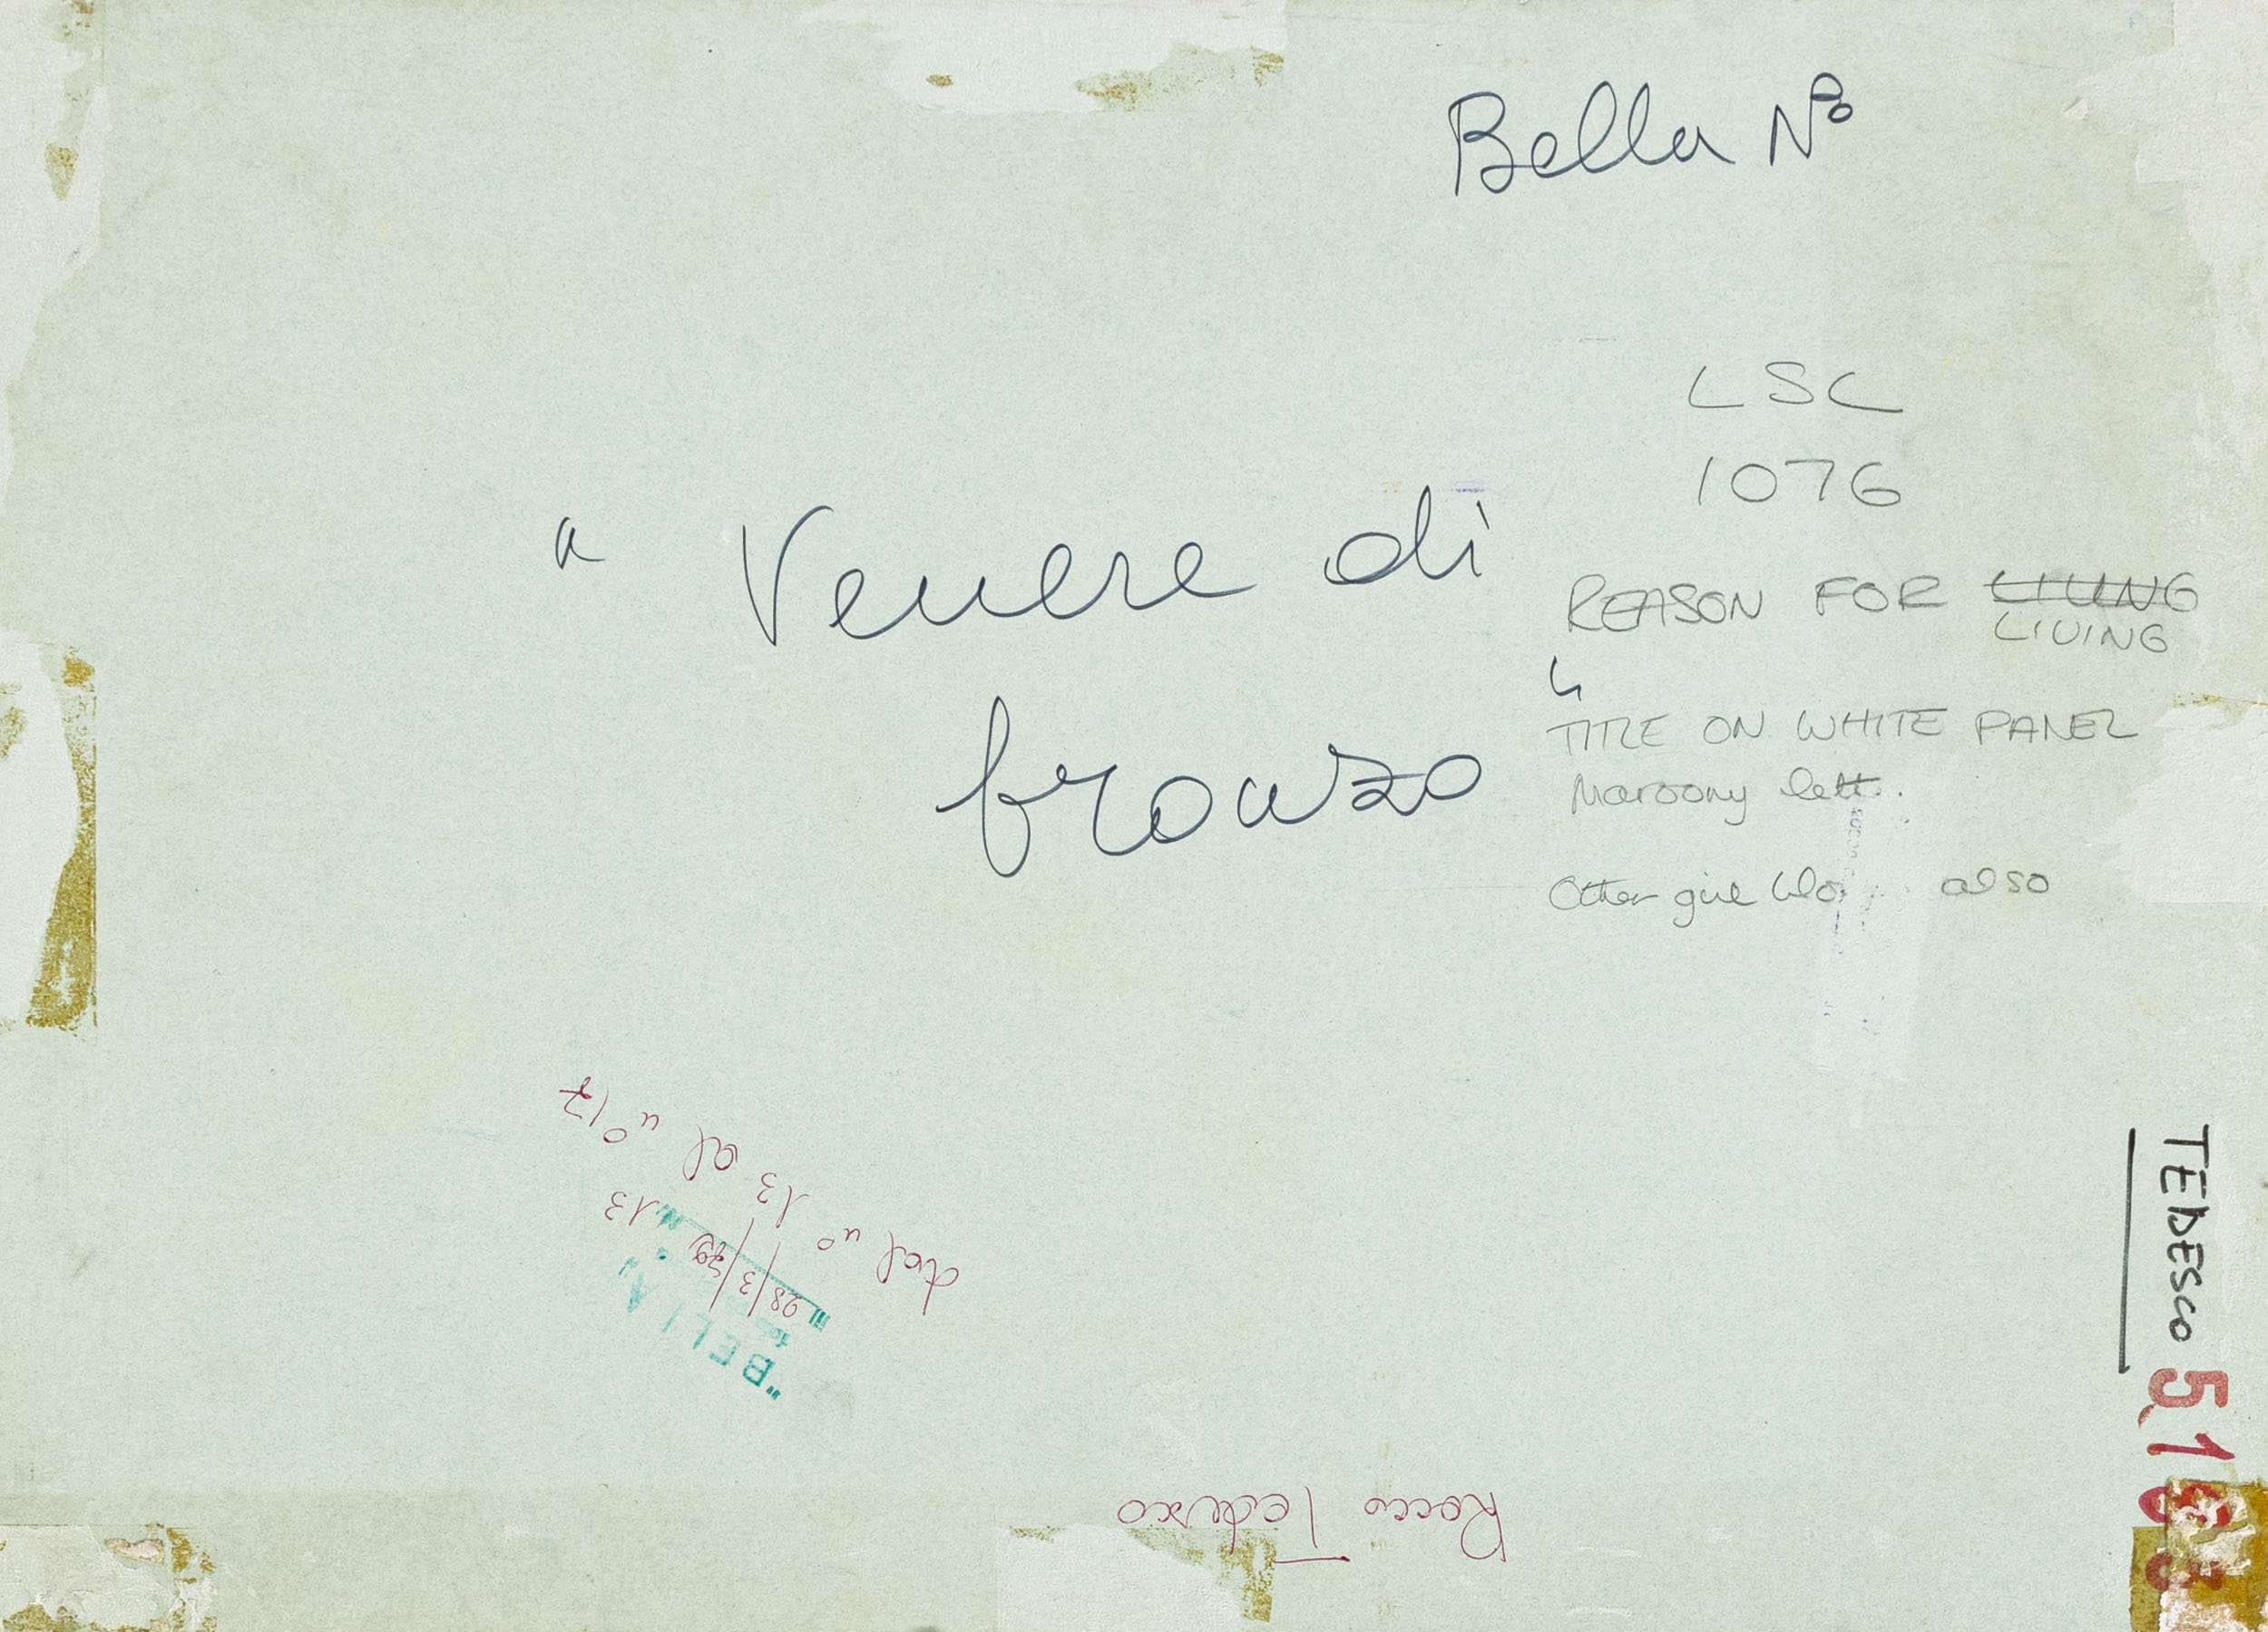 Bella N°
LSC
1076
" Venere di
bronzo
REASON FOR LIUNG
LIVING
TITLE ON WHITE PANEL
Maroony lett.
Other girl also
dal n° 13 al n° 17
13
28/3/79
"BELLA"
TEDESCO
Rocco Tedesco